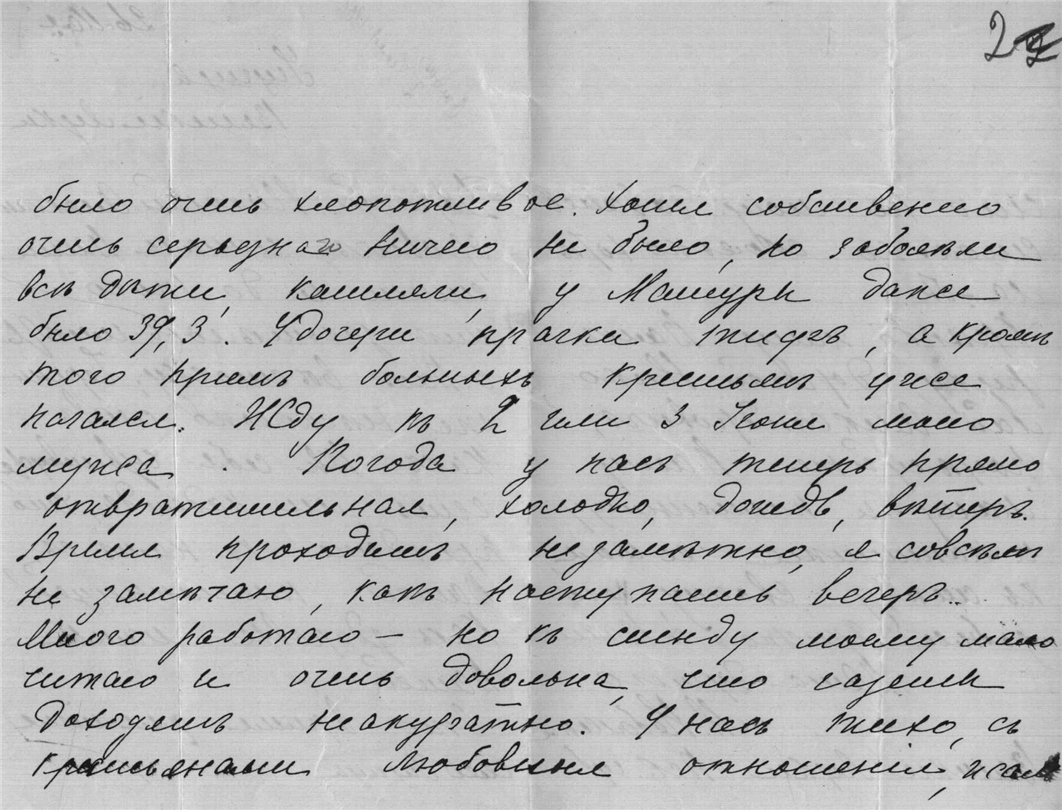 22
было очень хлопотливое. Хотя собственно
очень серьезнаго ничего не было, но заболѣли
всѣ дѣти, кашляли, у Машуры даже
было 39,3. У дочери прачки тифъ, а кромѣ
того пріемъ больныхъ крестьянъ уже
начался. Жду къ 2 или 3 Іюня моего
мужа. Погода у насъ теперь прямо
отвратительная, холодно, дождь, вѣтеръ.
Время проходитъ незамѣтно, я совсѣмъ
не замѣчаю, какъ наступаетъ вечеръ..
Много работаю – но къ стыду моему мало
читаю и очень довольна, что газеты
доходятъ неакуратно. У насъ тихо, съ
крестьянами любовныя отношенія,